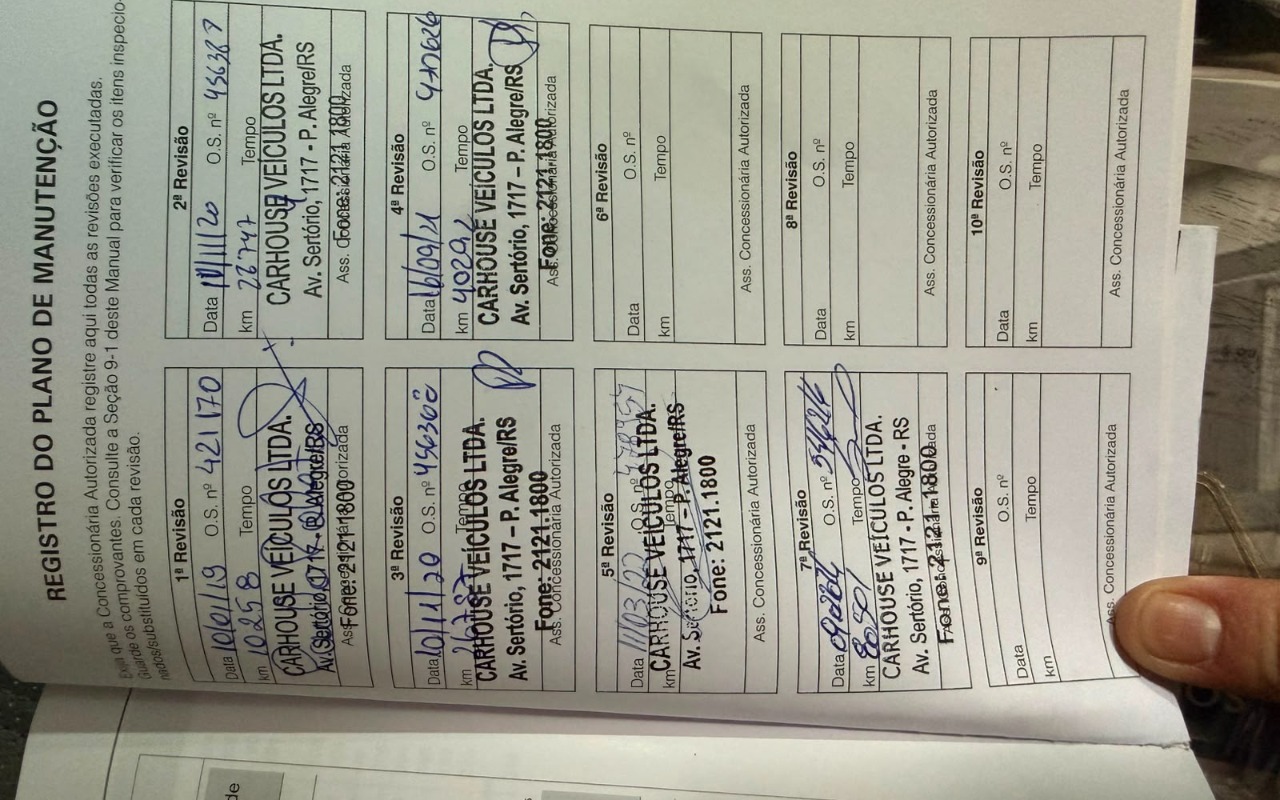 REGISTRO DO PLANO DE MANUTENÇÃO
Exija que a Concessionária Autorizada registre aqui todas as revisões executadas.
Guarde os comprovantes. Consulte a Seção 9-1 deste Manual para verificar os itens inspecio-
nados/substituídos em cada revisão.
1ª Revisão
Data 10/01/19 O.S. nº 421170
km 10258 Tempo
CARHOUSE VEÍCULOS LTDA.
Av. Sertório, 1717 - P. Alegre/RS
Fone: 2121.1800
2ª Revisão
Data O.S. nº
km 22747 Tempo
CARHOUSE VEÍCULOS LTDA.
Av. Sertório, 1717 - P. Alegre/RS
Fone: 2121.1800
Ass. Concessionária Autorizada
3ª Revisão
Data 10/11/20 O.S. nº
km Tempo
CARHOUSE VEÍCULOS LTDA.
Av. Sertório, 1717 – P. Alegre/RS
Fone: 2121.1800
Ass. Concessionária Autorizada
4ª Revisão
Data 16/09/21 O.S. nº
km Tempo
CARHOUSE VEÍCULOS LTDA.
Av. Sertório, 1717 - P. Alegre/RS
Fone: 2121.1800
Ass. Concessionária Autorizada
5ª Revisão
Data 11/03/22 O.S. nº
km Tempo
CARHOUSE VEÍCULOS LTDA.
Av. Sertório, 1717 - P. Alegre/RS
Fone: 2121.1800
Ass. Concessionária Autorizada
6ª Revisão
Data O.S. nº
km Tempo
Ass. Concessionária Autorizada
7ª Revisão
Data O.S. nº
km Tempo
CARHOUSE VEÍCULOS LTDA.
Av. Sertório, 1717 - P. Alegre - RS
Fone: 2121.1800
8ª Revisão
Data O.S. nº
km Tempo
Ass. Concessionária Autorizada
9ª Revisão
Data O.S. nº
km Tempo
Ass. Concessionária Autorizada
10ª Revisão
Data O.S. nº
km Tempo
Ass. Concessionária Autorizada
de